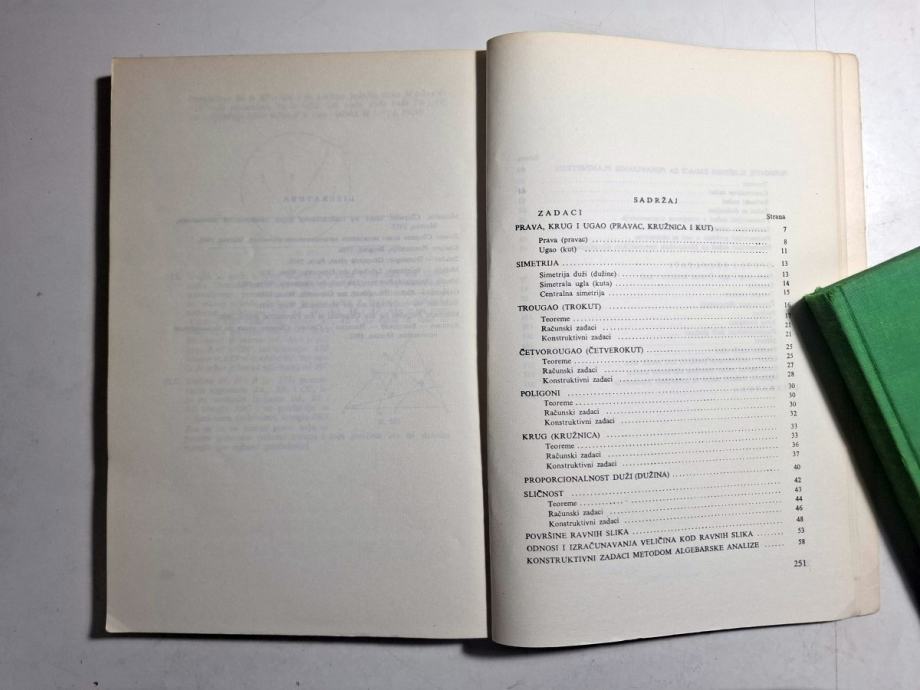 SADRŽAJ
ZADACI Strana
PRAVA, KRUG I UGAO (PRAVAC, KRUŽNICA I KUT) 7
Prava (pravac) 8
Ugao (kut) 11
SIMETRIJA 13
Simetrija duži (dužine) 13
Simetrala ugla (kuta) 14
Centralna simetrija 15
TROUGAO (TROKUT) 16
Teoreme 17
Računski zadaci 21
Konstruktivni zadaci 21
ČETVOROUGAO (ČETVEROKUT) 25
Teoreme 25
Računski zadaci 27
Konstruktivni zadaci 28
POLIGONI 30
Teoreme 30
Računski zadaci 30
Konstruktivni zadaci 32
KRUG (KRUŽNICA) 33
Teoreme 33
Računski zadaci 36
Konstruktivni zadaci 37
PROPORCIONALNOST DUŽI (DUŽINA) 40
SLIČNOST 42
Teoreme 43
Računski zadaci 44
Konstruktivni zadaci 46
POVRŠINE RAVNIH SLIKA 48
ODNOSI I IZRAČUNAVANJA VELIČINA KOD RAVNIH SLIKA 53
KONSTRUKTIVNI ZADACI METODOM ALGEBARSKE ANALIZE 58
251